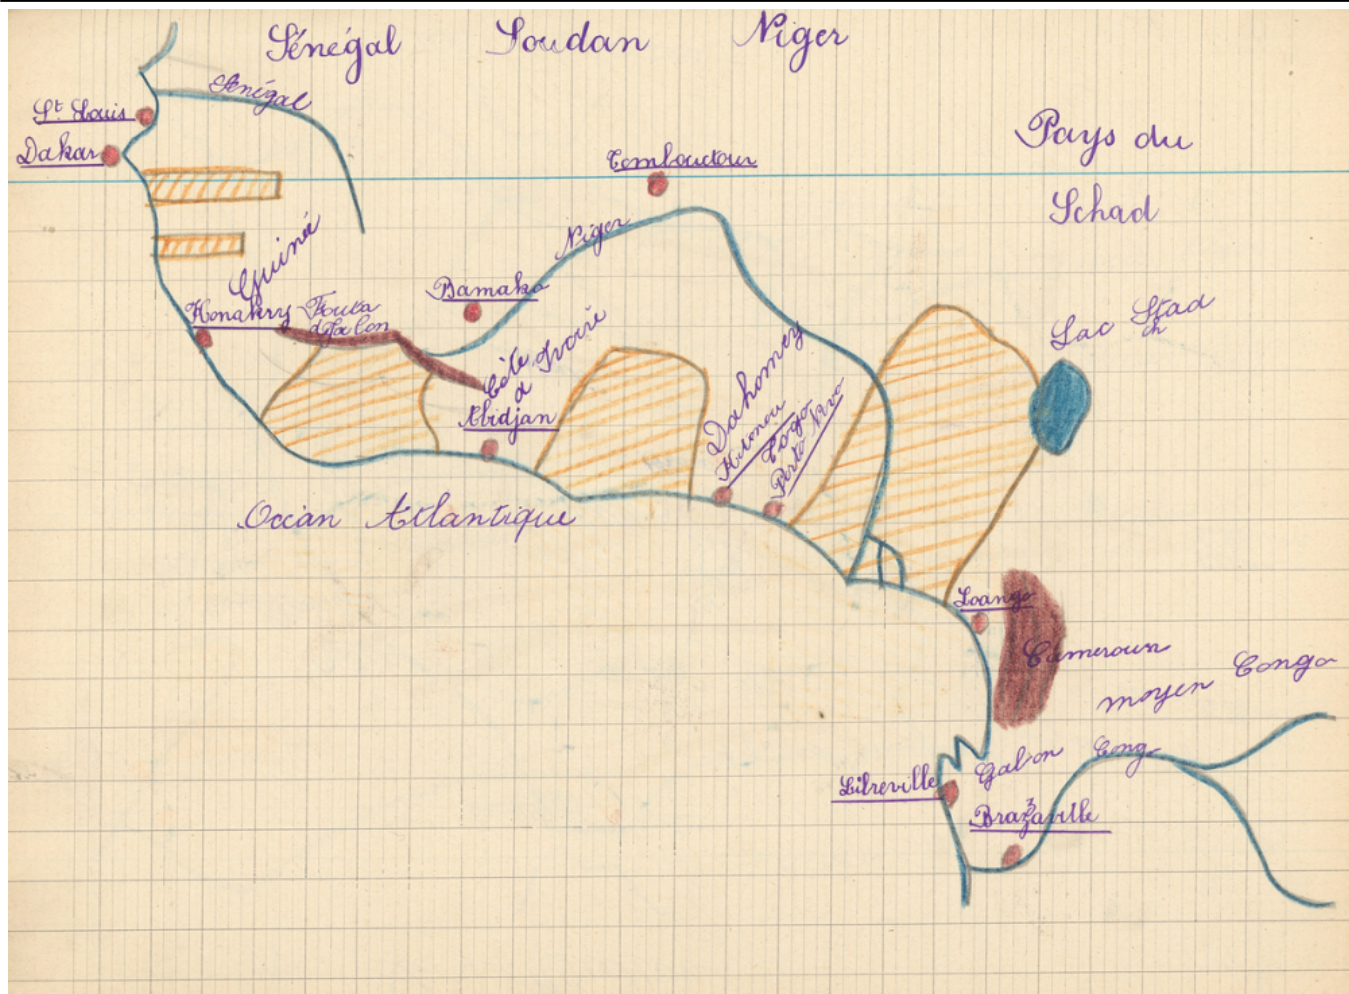 Sénégal Soudan Niger
Sénégal
St Louis
Dakar
Pays du
Tchad
Tombouctou
Niger
Guinée
Bamako
Konakry
Fouta
djalon
Lac Tchad
Côte
d Ivoire
Abidjan
Dahomey
Togo
Porto Novo
Océan Atlantique
Loango
Cameroun
moyen Congo
Gabon
Cong
Libreville
Brazzaville